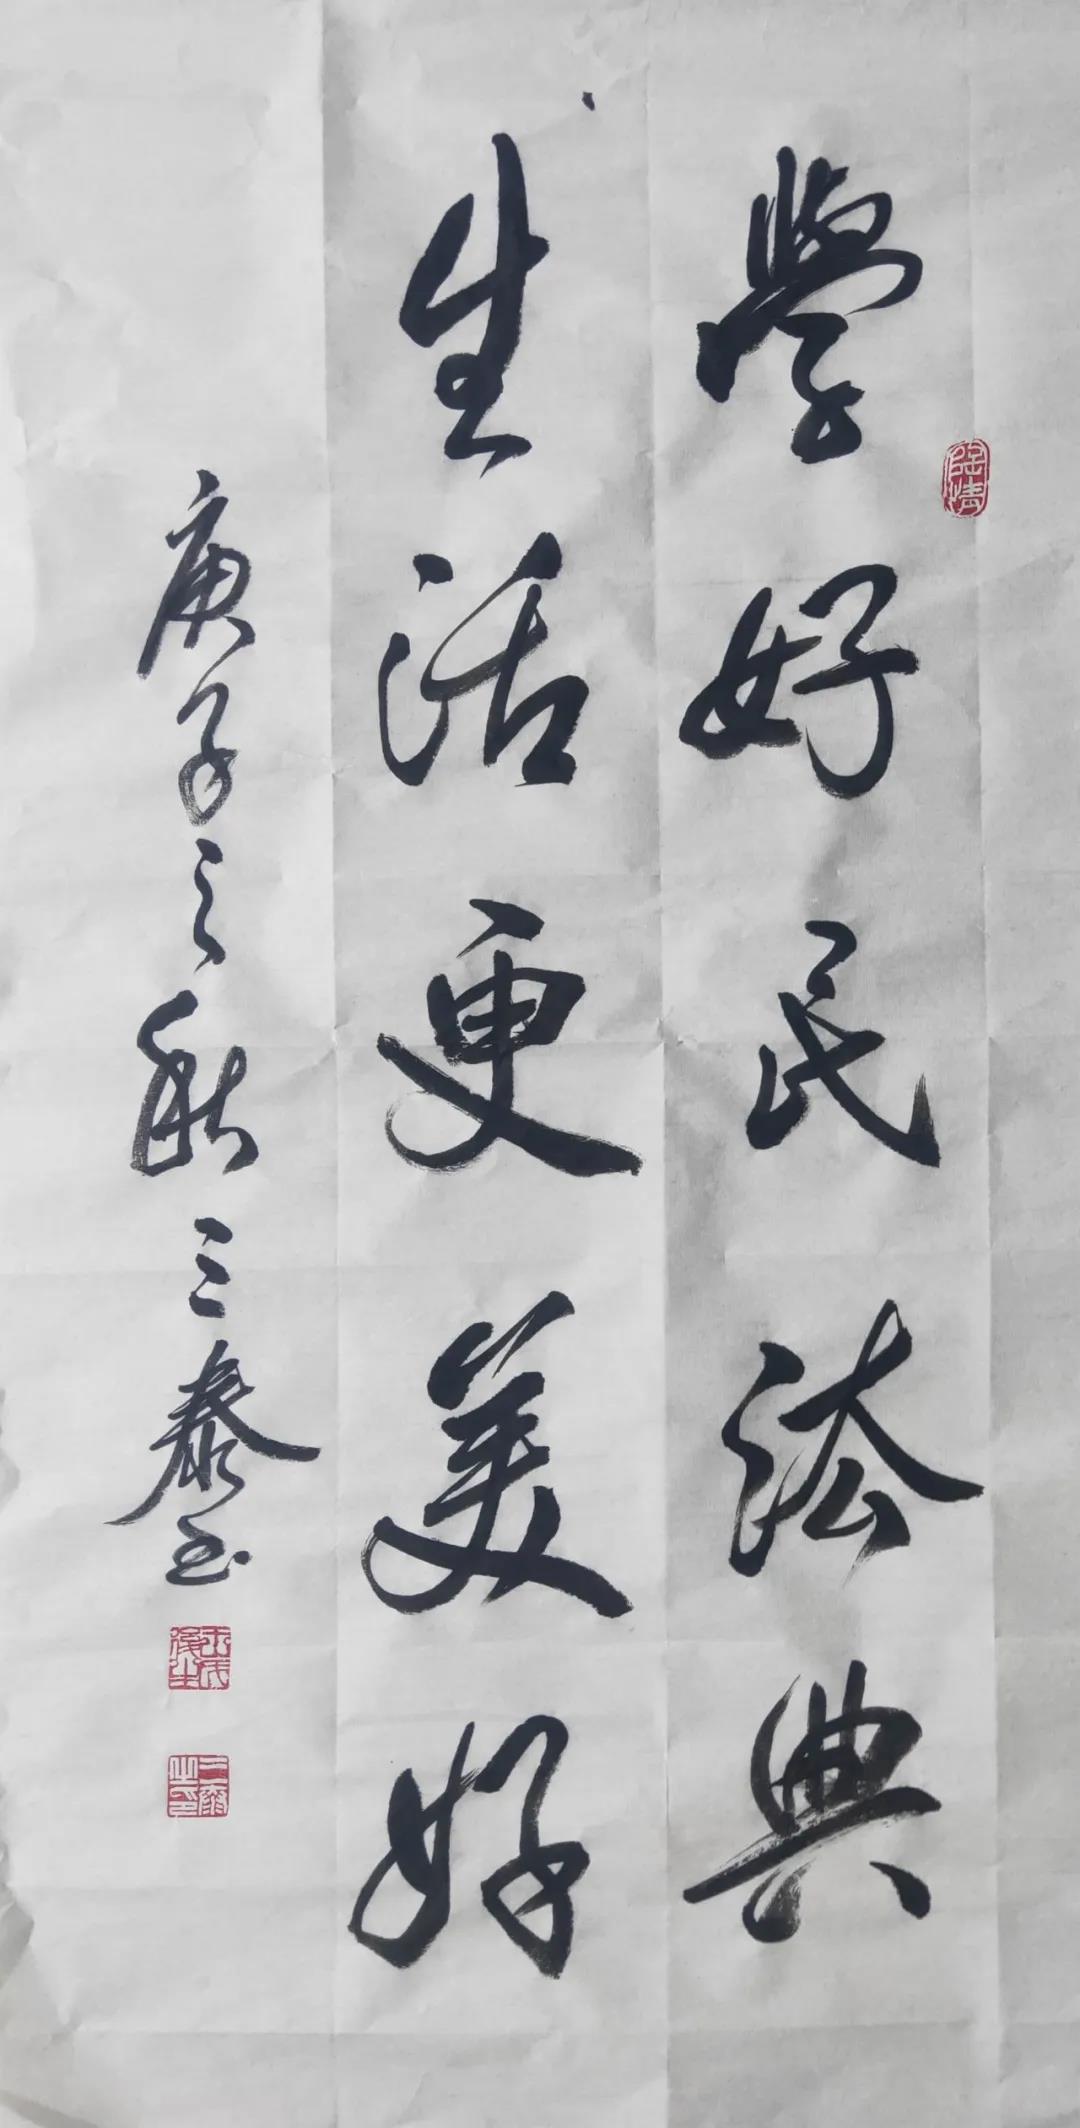 學好民法典
生活更美好
庚子之秋三泰书
陶情